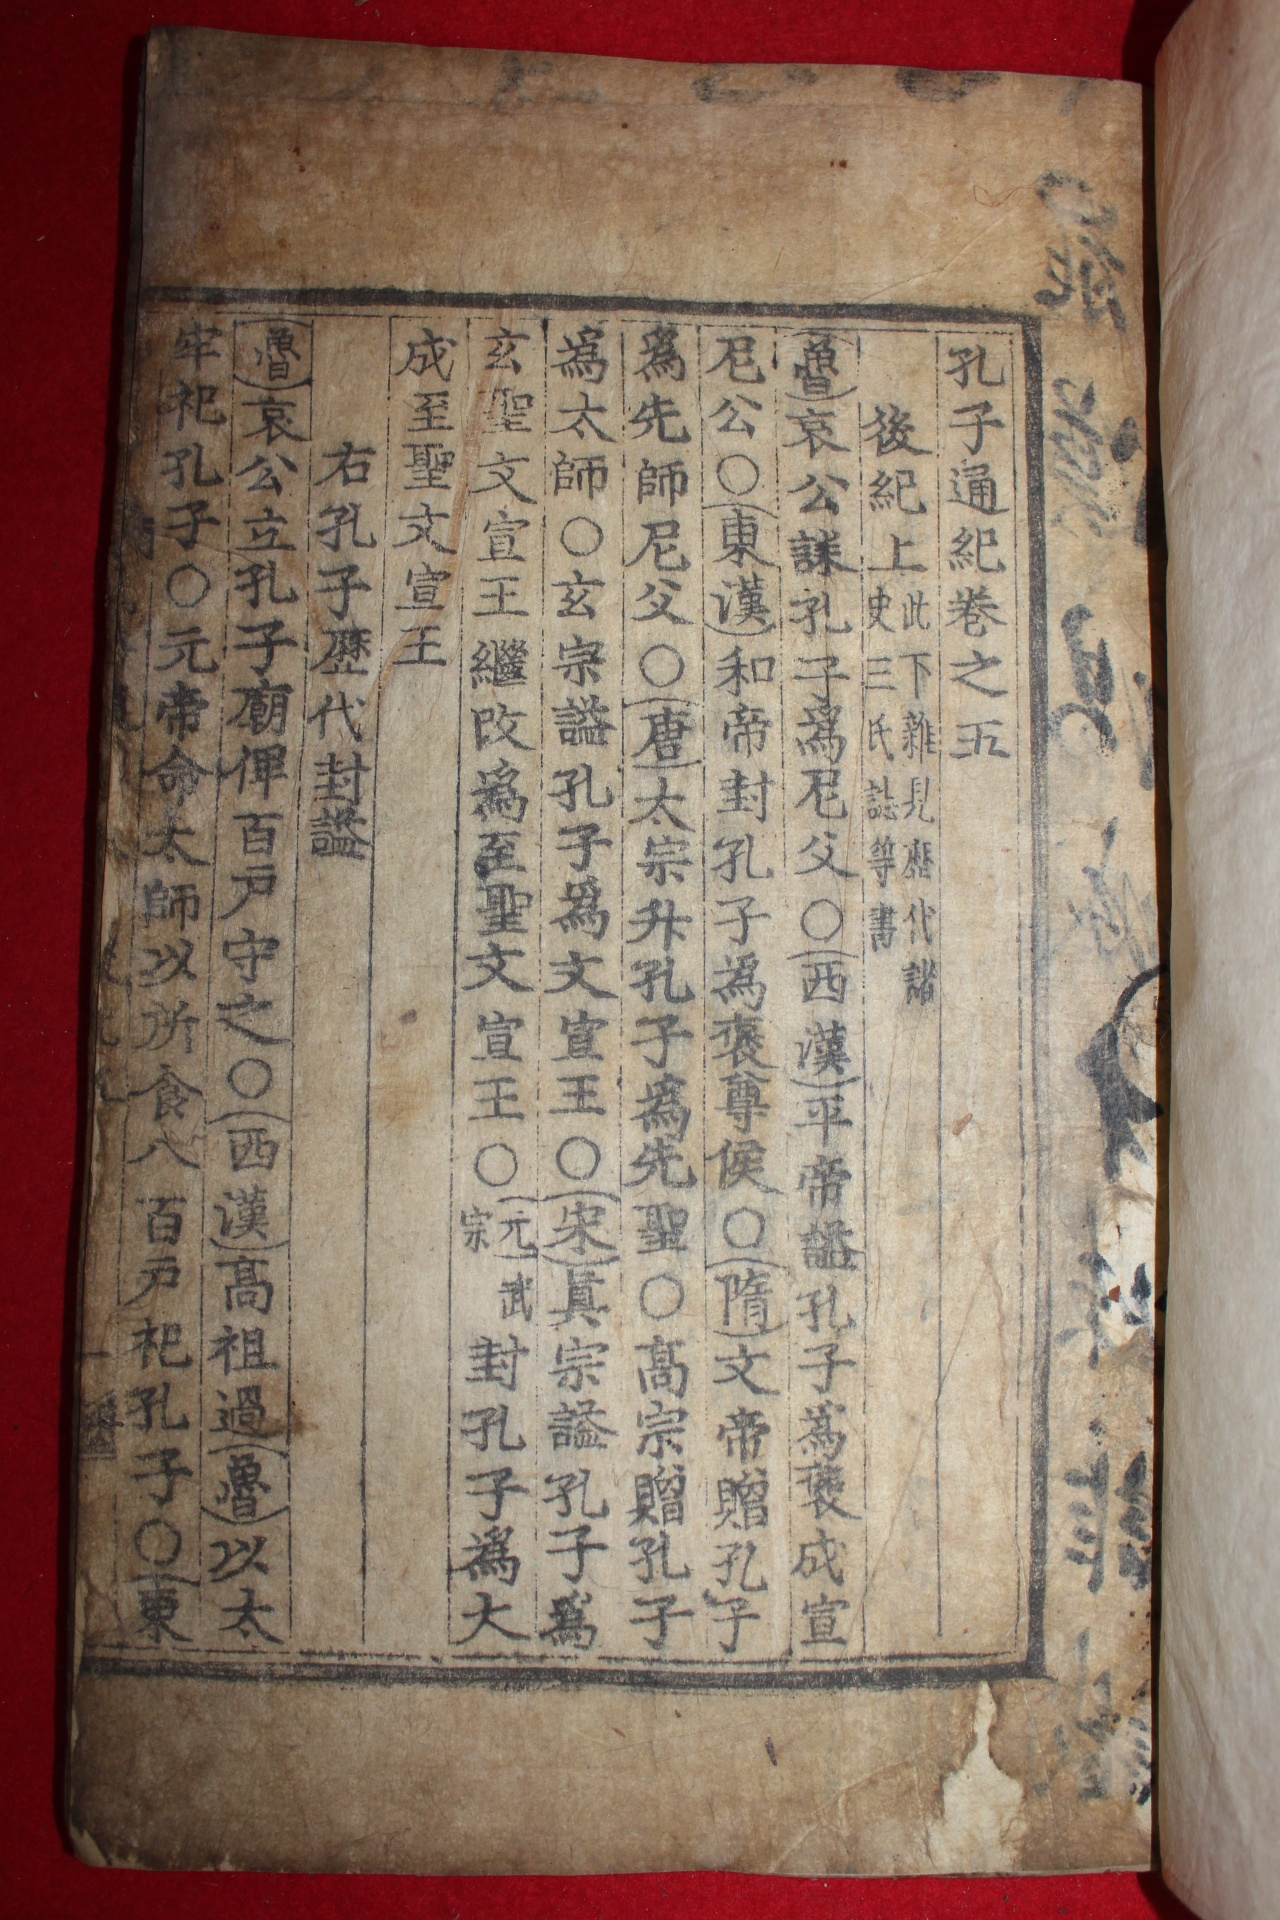 孔子通紀卷之五
後紀上此下雜見歷代諸史三氏誌等書
魯哀公誄孔子爲尼父○西漢平帝謚孔子爲褒成宣
尼公○東漢和帝封孔子爲褒尊侯○隋文帝贈孔子
爲先師尼父○唐太宗升孔子爲先聖○高宗贈孔子
爲太師○玄宗謚孔子爲文宣王○宋真宗謚孔子爲
玄聖文宣王繼改爲至聖文宣王○元武宗封孔子爲大
成至聖文宣王
右孔子歷代封謚
魯哀公立孔子廟俾百戶守之○西漢高祖過魯以太
牢祀孔子○元帝命太師以所食八百戶祀孔子○東